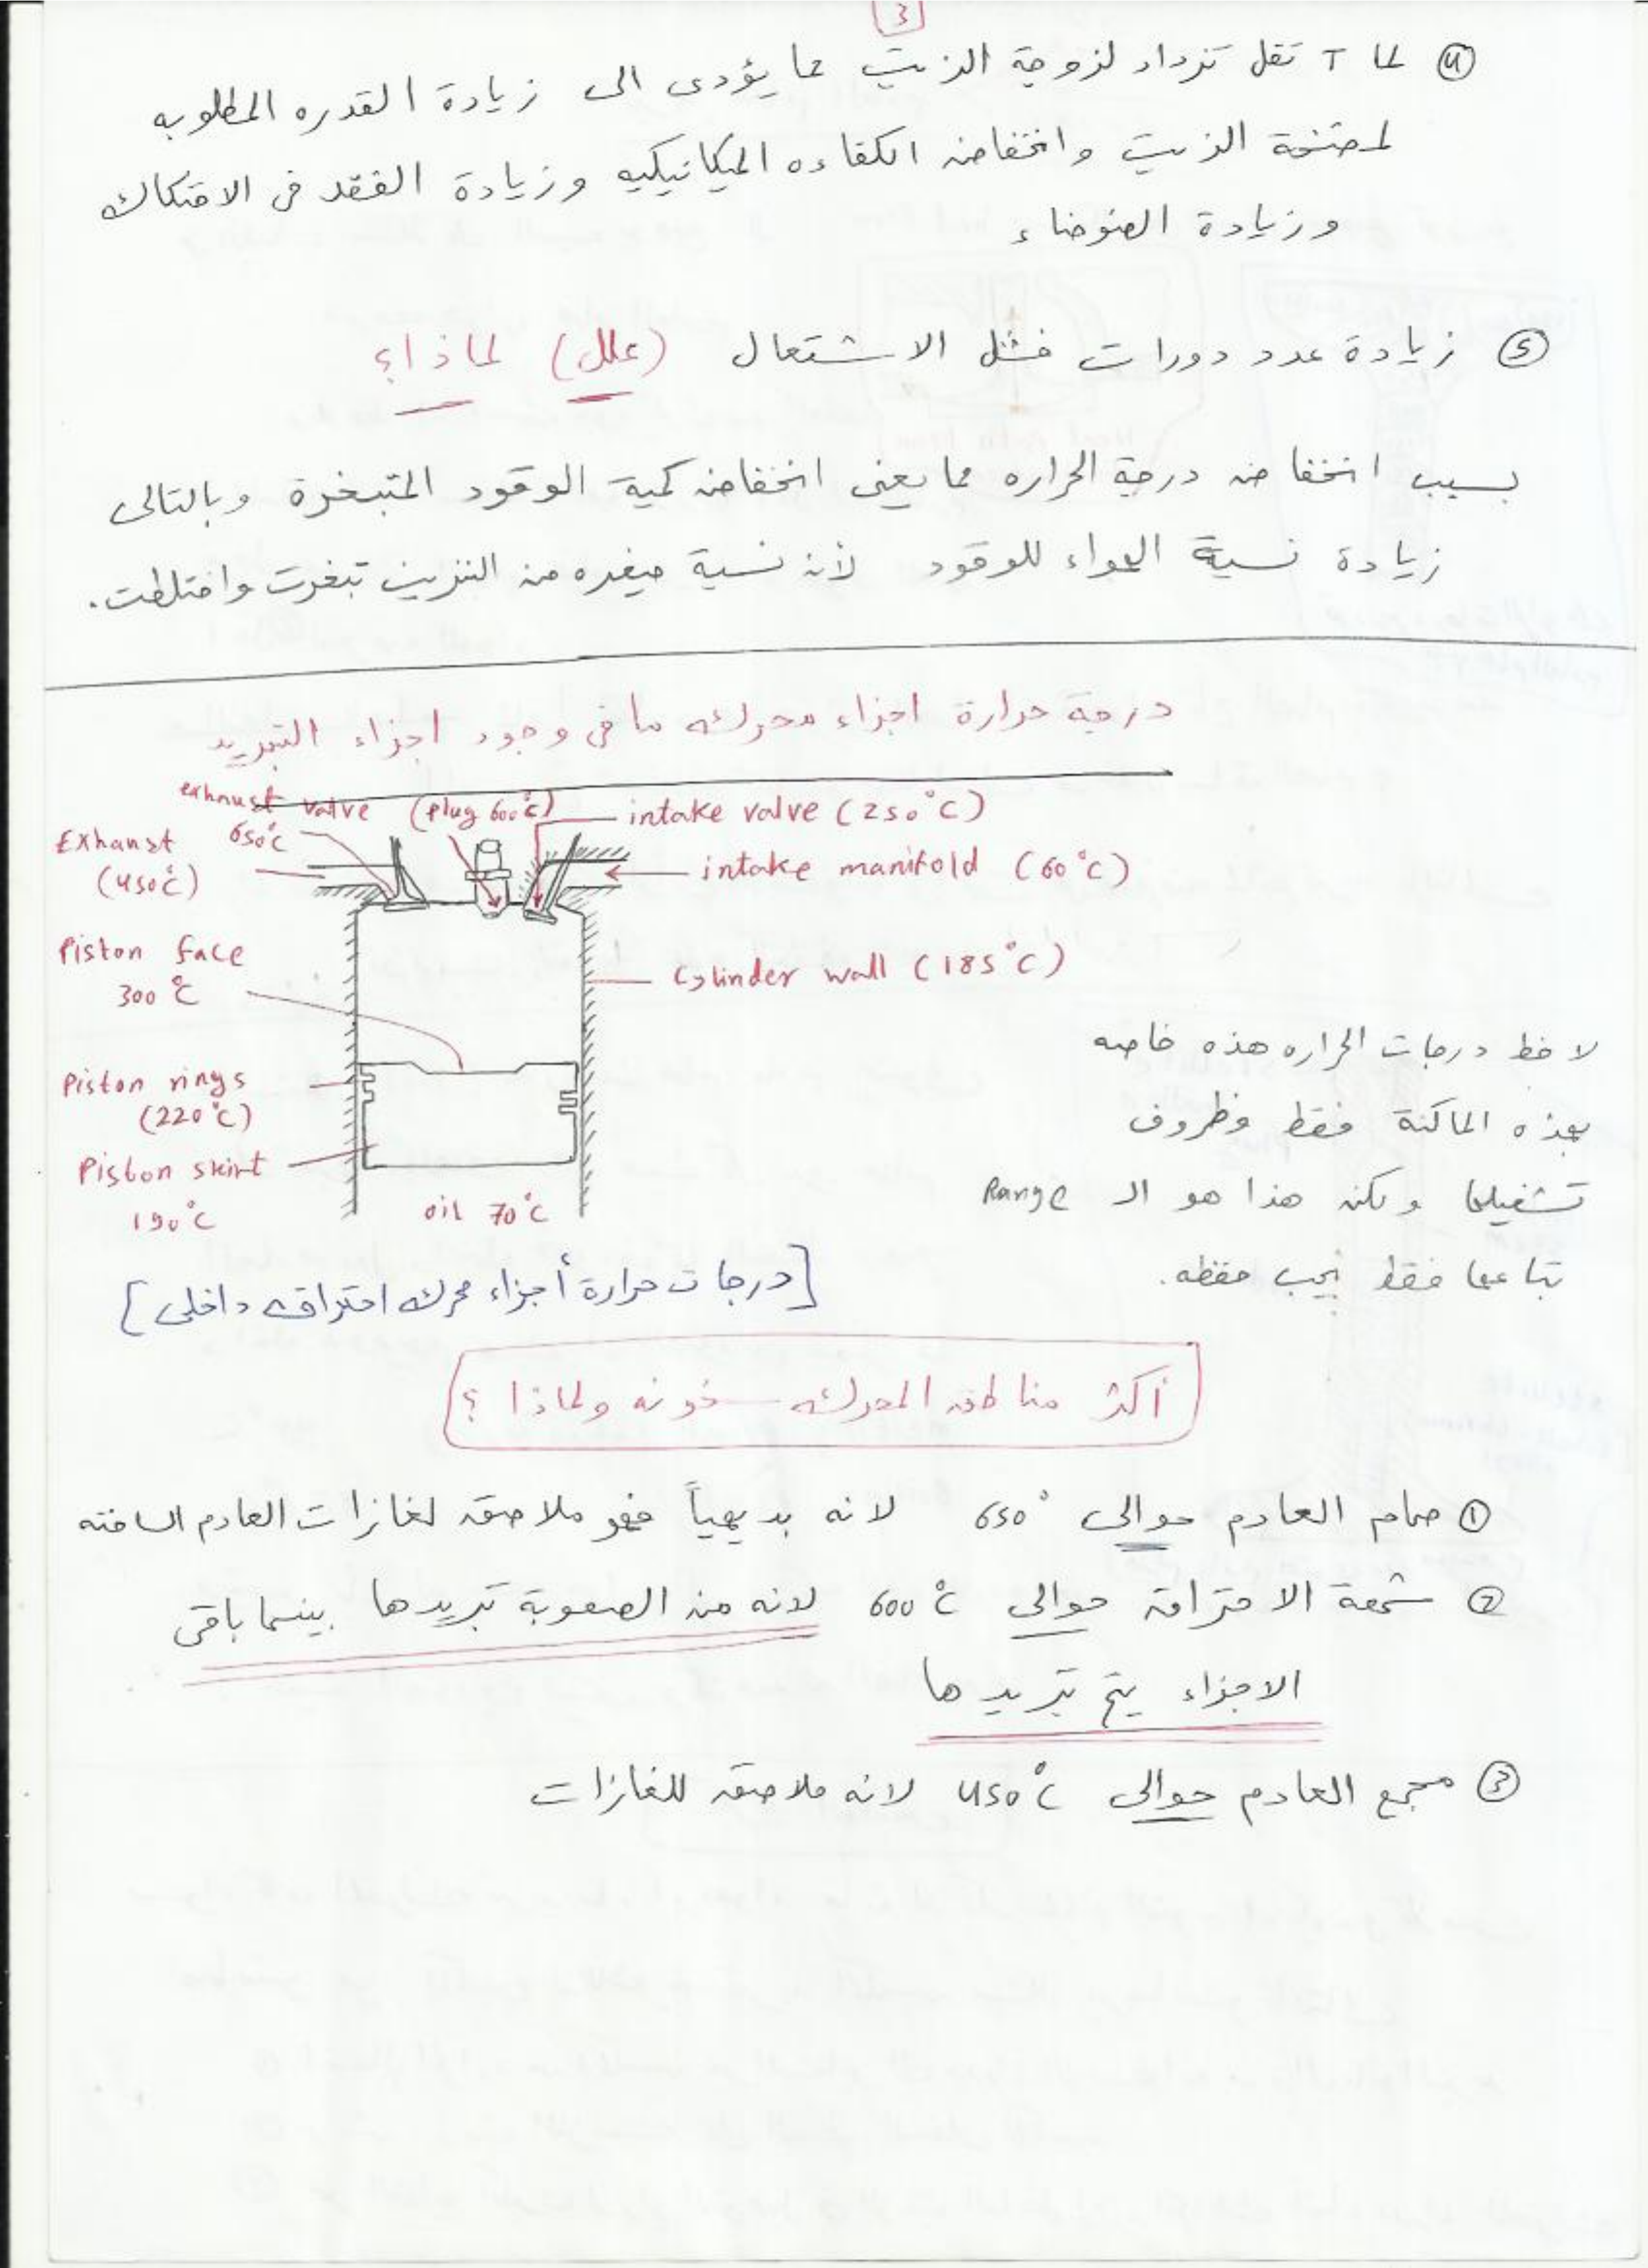 3
④ لما T تقل تزداد لزوجة الزيت مما يؤدى الى زيادة القدره المطلوبه
لمضخة الزيت وانخفاض الكفاءه الميكانيكيه وزيادة الفقد فى الاحتكاك
وزيادة الضوضاء
⑤ زيادة عدد دورات فشل الاشتعال (علل) لماذا؟
بسبب انخفاض درجة الحراره مما يعنى انخفاض كمية الوقود المتبخرة وبالتالى
زيادة نسبة الهواء للوقود لأن نسبة صغيره من البنزين تبخرت واختلطت.
درجة حرارة اجزاء محرك ما فى وجود اجزاء التبريد
exhaust valve
650°C
(plug 600°C)
intake valve (250°C)
Exhaust
(450°C)
intake manifold (60°C)
Piston face
300°C
Cylinder wall (185°C)
Piston rings
(220°C)
Piston skirt
190°C
oil 70°C
لاحظ درجات الحراره هذه خاصه
بهذه الماكنة فقط وظروف
تشغيلها ولكن هذا هو الـ Range
تباعها فقط يجب حفظه.
[درجات حرارة أجزاء محرك احتراق داخلى]
أكثر مناطق المحرك سخونه ولماذا ؟
① صمام العادم حوالى 650° لانه بديهياً فهو ملاصق لغازات العادم الساخنه
② شمعة الاحتراق حوالى 600°C لانه من الصعوبة تبريدها بينما باقى
الاجزاء يتم تبريدها
③ مجمع العادم حوالى 450°C لانه ملاصق للغازات